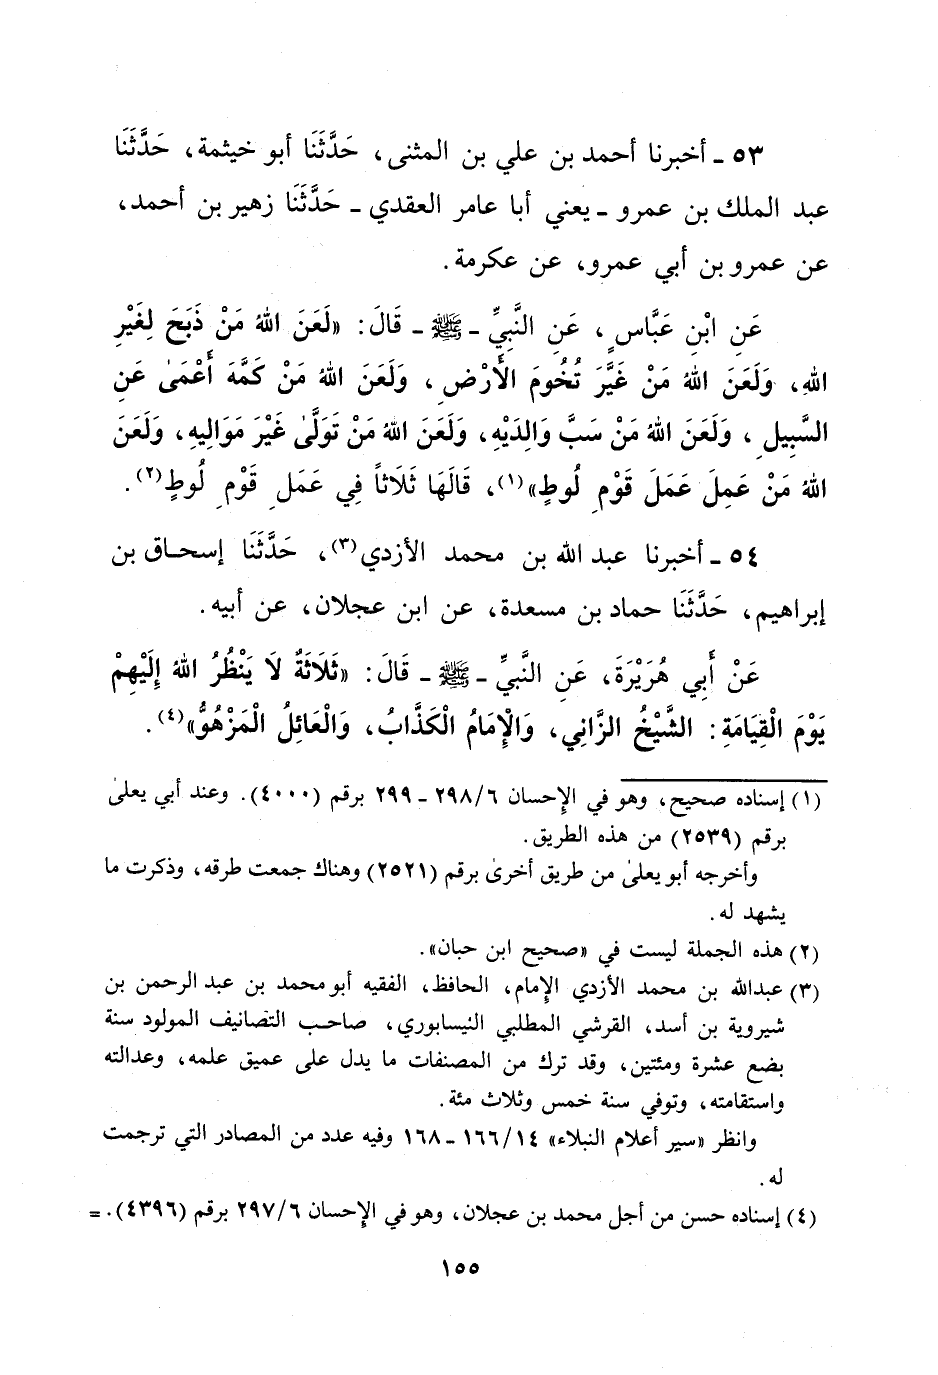 ٥٣ ـ أخبرنا أحمد بن علي بن المثنى، حَدَّثَنَا أبو خيثمة، حَدَّثَنَا
عبد الملك بن عمرو ـ يعني أبا عامر العقدي ـ حَدَّثَنَا زهير بن أحمد،
عن عمرو بن أبي عمرو، عن عكرمة.
عَنِ ابْنِ عَبَّاسٍ، عَنِ النَّبِيِّ ـ ﷺ ـ قَالَ: «لَعَنَ اللهُ مَنْ ذَبَحَ لِغَيْرِ
اللهِ، وَلَعَنَ اللهُ مَنْ غَيَّرَ تُخُومَ الأَرْضِ، وَلَعَنَ اللهُ مَنْ كَمَّهَ أَعْمَىٰ عَنِ
السَّبِيلِ، وَلَعَنَ اللهُ مَنْ سَبَّ وَالِدَيْهِ، وَلَعَنَ اللهُ مَنْ تَوَلَّىٰ غَيْرَ مَوَالِيهِ، وَلَعَنَ
اللهُ مَنْ عَمِلَ عَمَلَ قَوْمِ لُوطٍ»(١)، قَالَهَا ثَلَاثاً فِي عَمَلِ قَوْمِ لُوطٍ(٢).
٥٤ ـ أخبرنا عبد الله بن محمد الأزدي(٣)، حَدَّثَنَا إسحاق بن
إبراهيم، حَدَّثَنَا حماد بن مسعدة، عن ابن عجلان، عن أبيه.
عَنْ أَبِي هُرَيْرَةَ، عَنِ النَّبِيِّ ـ ﷺ ـ قَالَ: «ثَلَاثَةٌ لَا يَنْظُرُ اللهُ إِلَيْهِمْ
يَوْمَ الْقِيَامَةِ: الشَّيْخُ الزَّانِي، وَالْإِمَامُ الْكَذَّابُ، وَالْعَائِلُ الْمَزْهُوُّ»(٤).
(١) إسناده صحيح، وهو في الإحسان ٢٩٨/٦ ـ ٢٩٩ برقم (٤٠٠٠). وعند أبي يعلىٰ
برقم (٢٥٣٩) من هذه الطريق.
وأخرجه أبو يعلىٰ من طريق أخرىٰ برقم (٢٥٢١) وهناك جمعت طرقه، وذكرت ما
يشهد له.
(٢) هذه الجملة ليست في «صحيح ابن حبان».
(٣) عبدالله بن محمد الأزدي الإمام، الحافظ، الفقيه أبو محمد بن عبد الرحمن بن
شيروية بن أسد، القرشي المطلبي النيسابوري، صاحب التصانيف المولود سنة
بضع عشرة ومئتين، وقد ترك من المصنفات ما يدل على عميق علمه، وعدالته
واستقامته، وتوفي سنة خمس وثلاث مئة.
وانظر «سير أعلام النبلاء» ١٦٦/١٤ ـ ١٦٨ وفيه عدد من المصادر التي ترجمت
له.
(٤) إسناده حسن من أجل محمد بن عجلان، وهو في الإحسان ٢٩٧/٦ برقم (٤٣٩٦). =
١٥٥